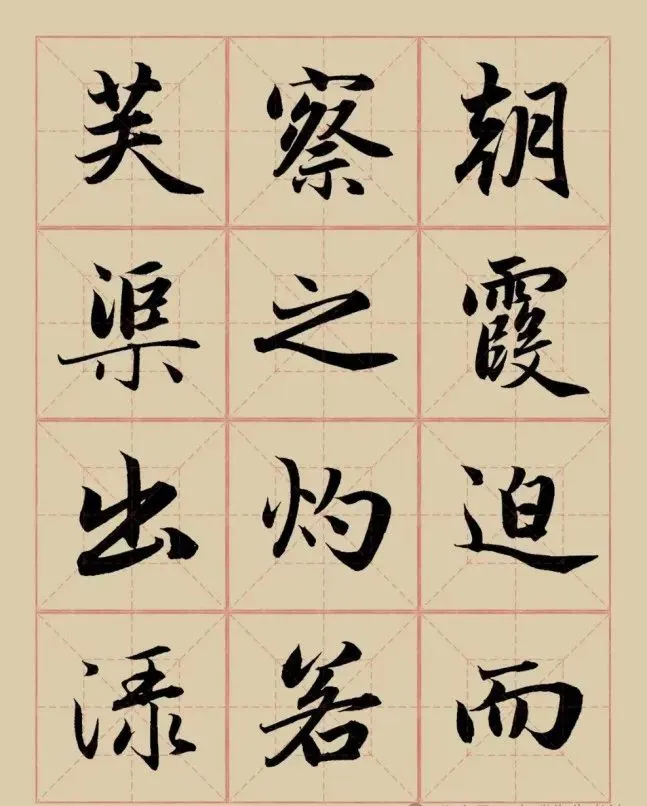 朝霞迫而
察之灼若
芙渠出渌